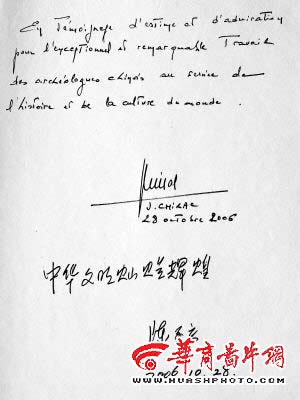 En témoignage d'estime et d'admiration
pour l'exceptionnel et remarquable Travail
des archéologues chinois au service de
l'histoire et de la culture du monde.
J. CHIRAC
28 octobre 2006
中华文明灿烂辉煌
2006.10.28.
华商图片网
WWW.HUASHPHOTO.COM